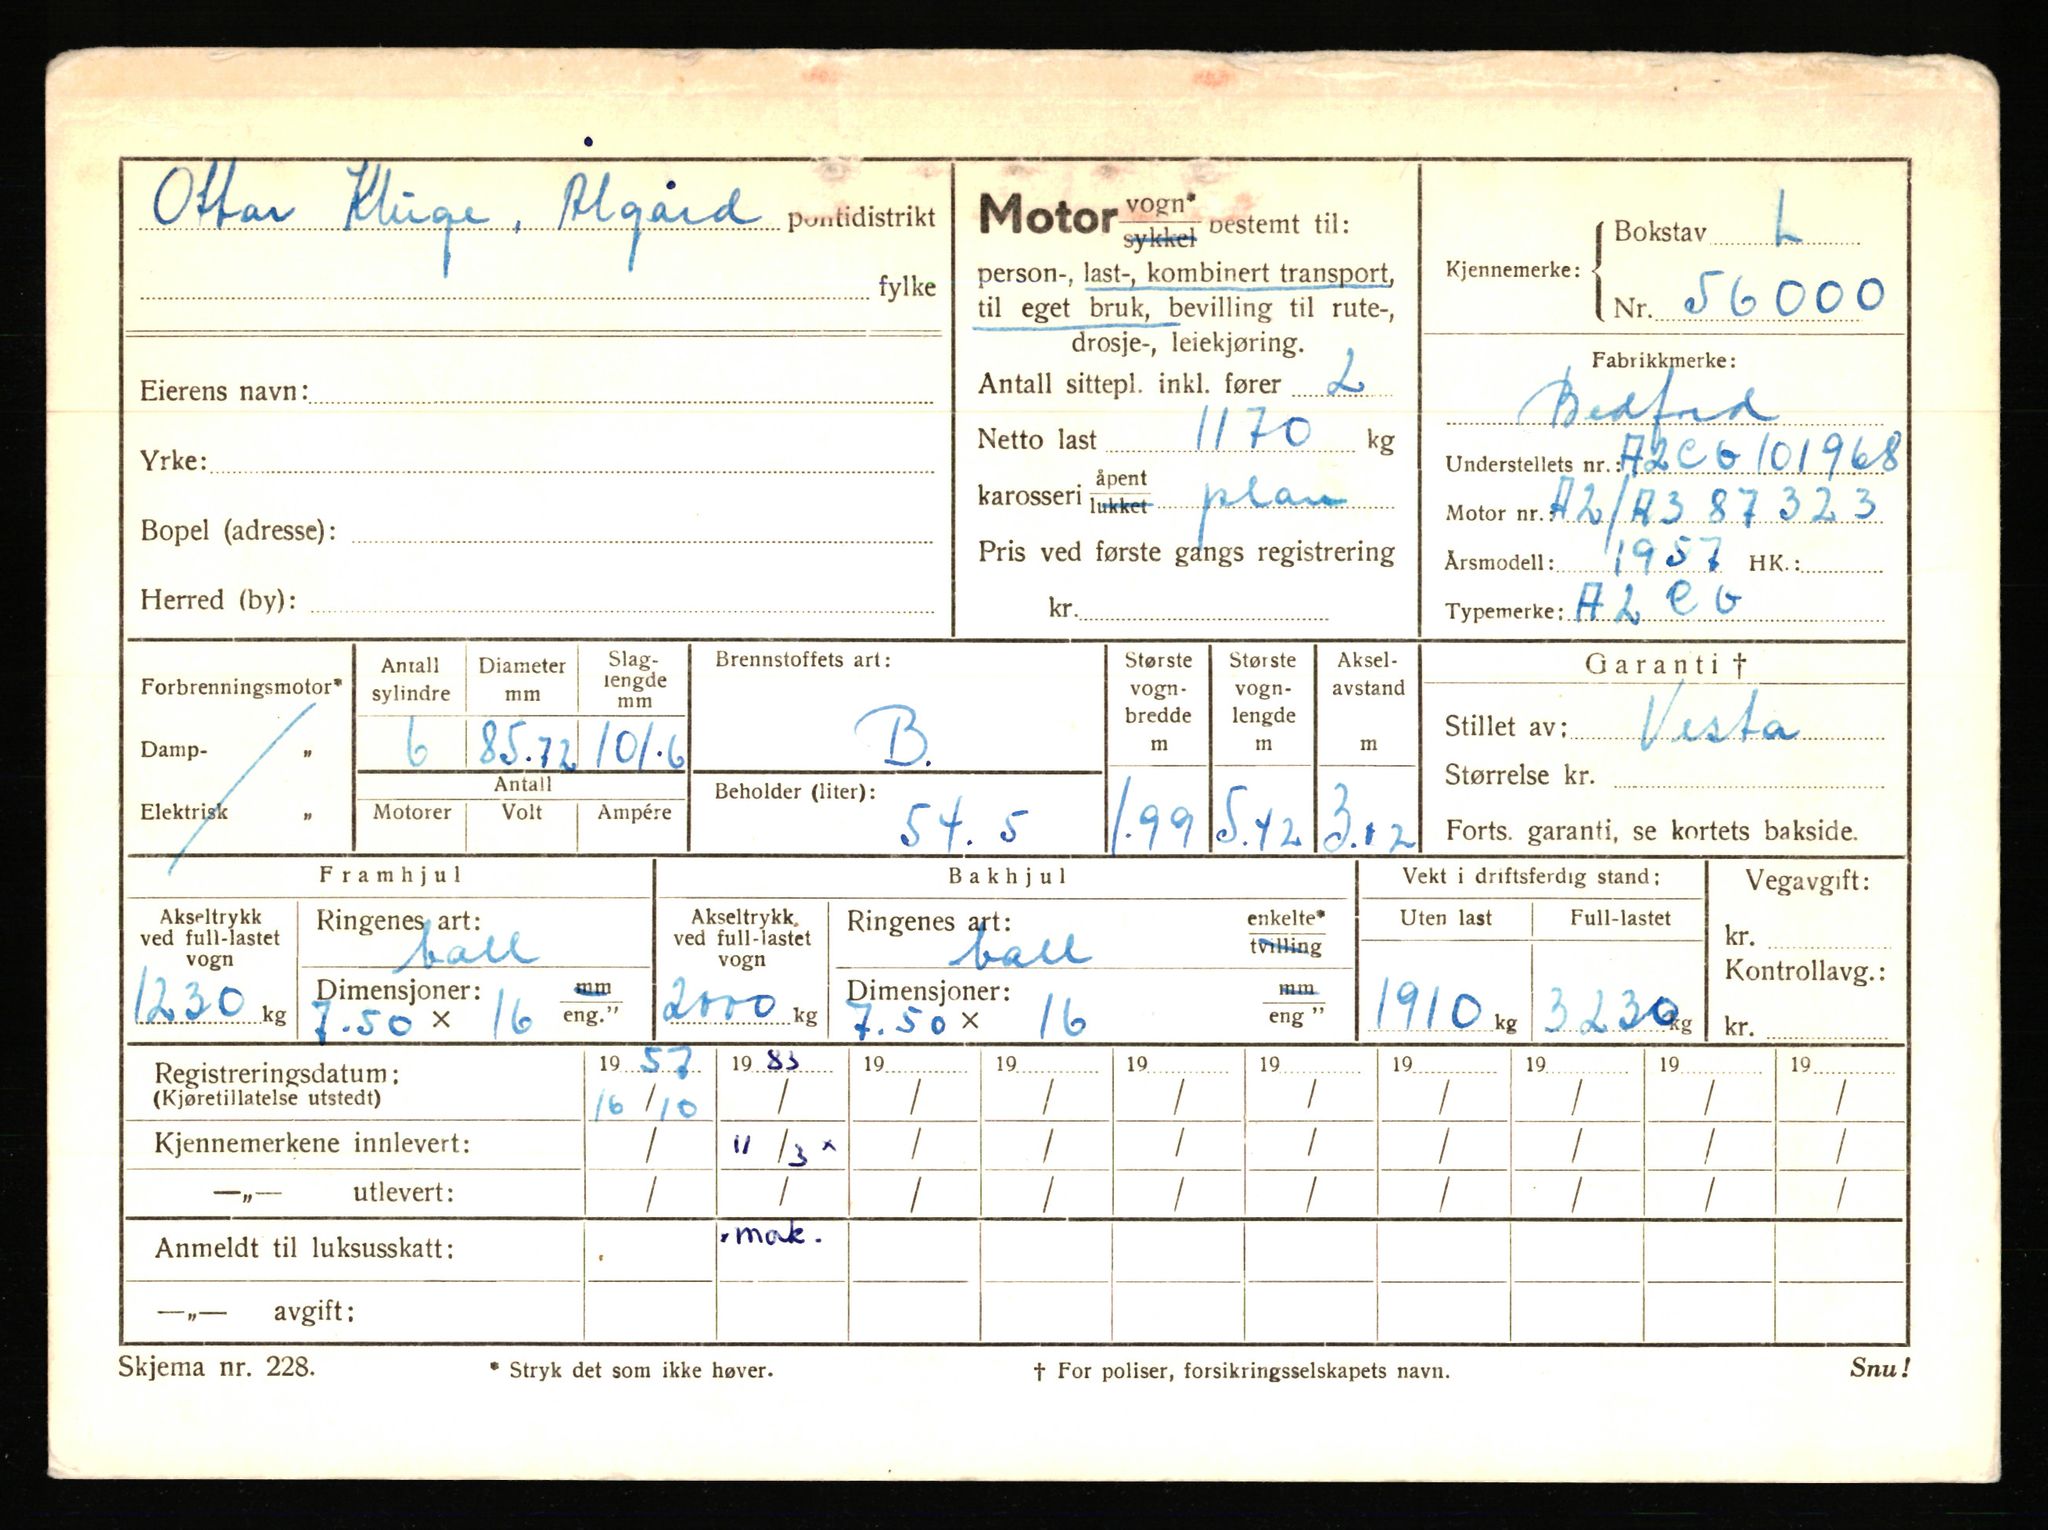 Ottar Kluge, Ålgård politidistrikt
fylke
Eierens navn:
Yrke:
Bopel (adresse):
Herred (by):
Motor vogn* sykkel bestemt til:
person-, last-, kombinert transport,
til eget bruk, bevilling til rute-,
drosje-, leiekjøring.
Antall sittepl. inkl. fører 2
Netto last 1170 kg
karosseri åpent lukket plan
Pris ved første gangs registrering
kr.
Kjennemerke: Bokstav L
Nr. 56000
Fabrikkmerke:
Bedford
Understellets nr.: A2CG101968
Motor nr.: A2/A387323
Årsmodell: 1957 HK.:
Typemerke: A2CG
Forbrenningsmotor*
Damp- „
Elektrisk „
Antall sylindre Diameter mm Slaglengde mm
6 85.72 101.6
Antall
Motorer Volt Ampére
Brennstoffets art:
B.
Beholder (liter):
54.5
Største vogn-bredde m
1.99
Største vogn-lengde m
5.42
Aksel-avstand m
3.12
Garanti †
Stillet av: Vesta
Størrelse kr.
Forts. garanti, se kortets bakside.
Framhjul
Akseltrykk ved full-lastet vogn
1230 kg
Ringenes art:
ball
Dimensjoner: mm
7.50 × 16 eng."
Bakhjul
Akseltrykk ved full-lastet vogn
2000 kg
Ringenes art: enkelte*
ball tvilling
Dimensjoner: mm
7.50 × 16 eng "
Vekt i driftsferdig stand:
Uten last Full-lastet
1910 kg 3230 kg
Vegavgift:
kr.
Kontrollavg.:
kr.
Registreringsdatum: 19 57 19 83 19 19 19 19 19 19 19 19
(Kjøretillatelse utstedt) 16/10 / / / / / / / / /
Kjennemerkene innlevert: / 11/3 × / / / / / / / /
—„— utlevert: / / / / / / / / / /
Anmeldt til luksusskatt: mak.
—„— avgift:
Skjema nr. 228. * Stryk det som ikke høver. † For poliser, forsikringsselskapets navn. Snu!